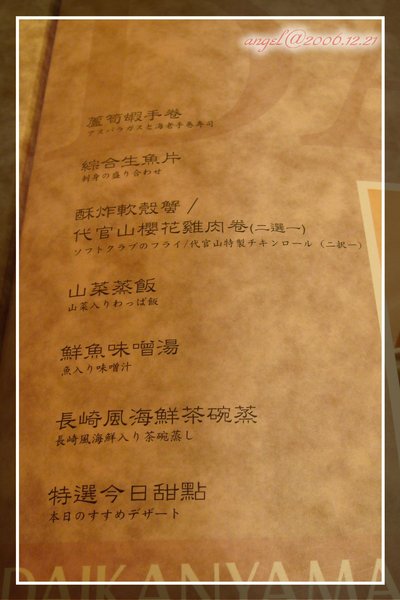 angel@2006.12.21
蘆筍蝦手卷
アスパラガスと海老手巻寿司
綜合生魚片
刺身の盛り合わせ
酥炸軟殼蟹/
代官山櫻花雞肉卷(二選一)
ソフトクラブのフライ/代官山特製チキンロール（二択一）
山菜蒸飯
山菜入りわっぱ飯
鮮魚味噌湯
魚入り味噌汁
長崎風海鮮茶碗蒸
長崎風海鮮入り茶碗蒸し
特選今日甜點
本日のすすめデザート
DAIKANYAMA